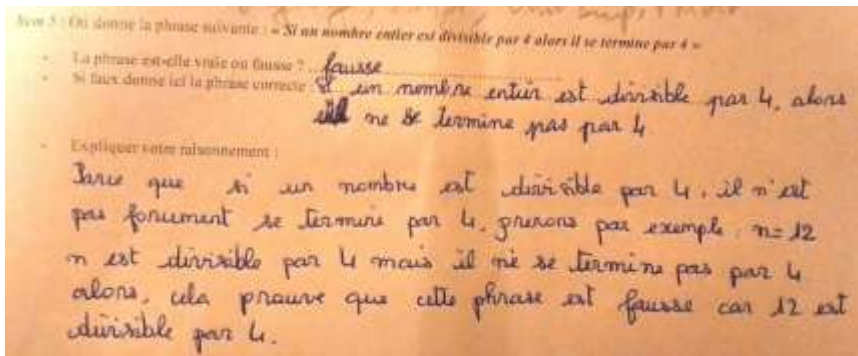 5 : On donne la phrase suivante : « Si un nombre entier est divisible par 4 alors il se termine par 4 »
- La phrase est-elle vraie ou fausse ? fausse
- Si faux donne ici la phrase correcte : Si un nombre entier est divisible par 4, alors
il ne se termine pas par 4
- Expliquer votre raisonnement :
Parce que si un nombre est divisible par 4, il n'est
pas forcument se termine par 4. prenons par exemple : n=12
n est divisible par 4 mais il ne se termine pas par 4
alors, cela prouve que cette phrase est fausse car 12 est
divisible par 4.